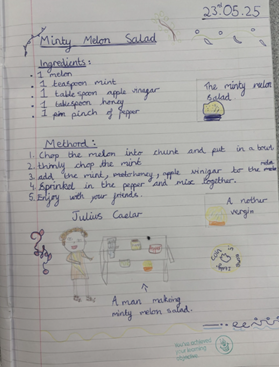 23.05.25
Minty Melon Salad
Ingredients:
• 1 melon
• 1 teaspoon mint
• 1 table spoon apple vinegar
• 1 tablespoon honey
• 1 pinch of pepper
The minty melon
salad
Method:
1. Chop the melon into chunt and put in a bowl
2. thinly chop the mint
3. add the mint, honey, apple vinegar to the melon
4. Sprinkled in the pepper and mix together.
5. Enjoy with your friends.
Julius Caesar
A nother
vergin
A man making
minty melon salad.